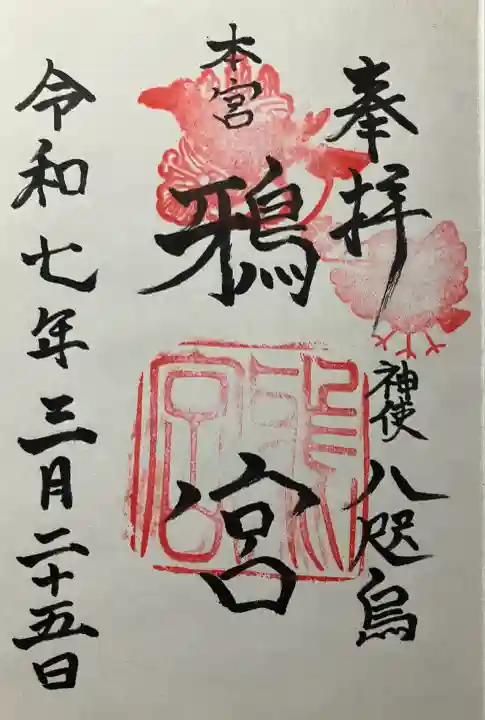 奉拝
神使 八咫烏
本宮
鴉宮
令和七年三月二十五日
鴉宮